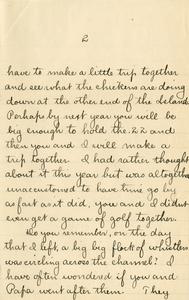 2
have to make a little trip together
and see what the chickens are doing
down at the other end of the Island
Perhaps by next year you will be
big enough to hold the .22 and
then you and I will make a
trip together. I had rather thought
about it this year but was altogether
unaccustomed to have time go by
as fast as it did, you and I didn't
even get a game of golf together.
Do you remember, on the day
that I left, a big big flock of whistlers
was circling across the channel? I
have often wondered if you and
Papa went after them. They